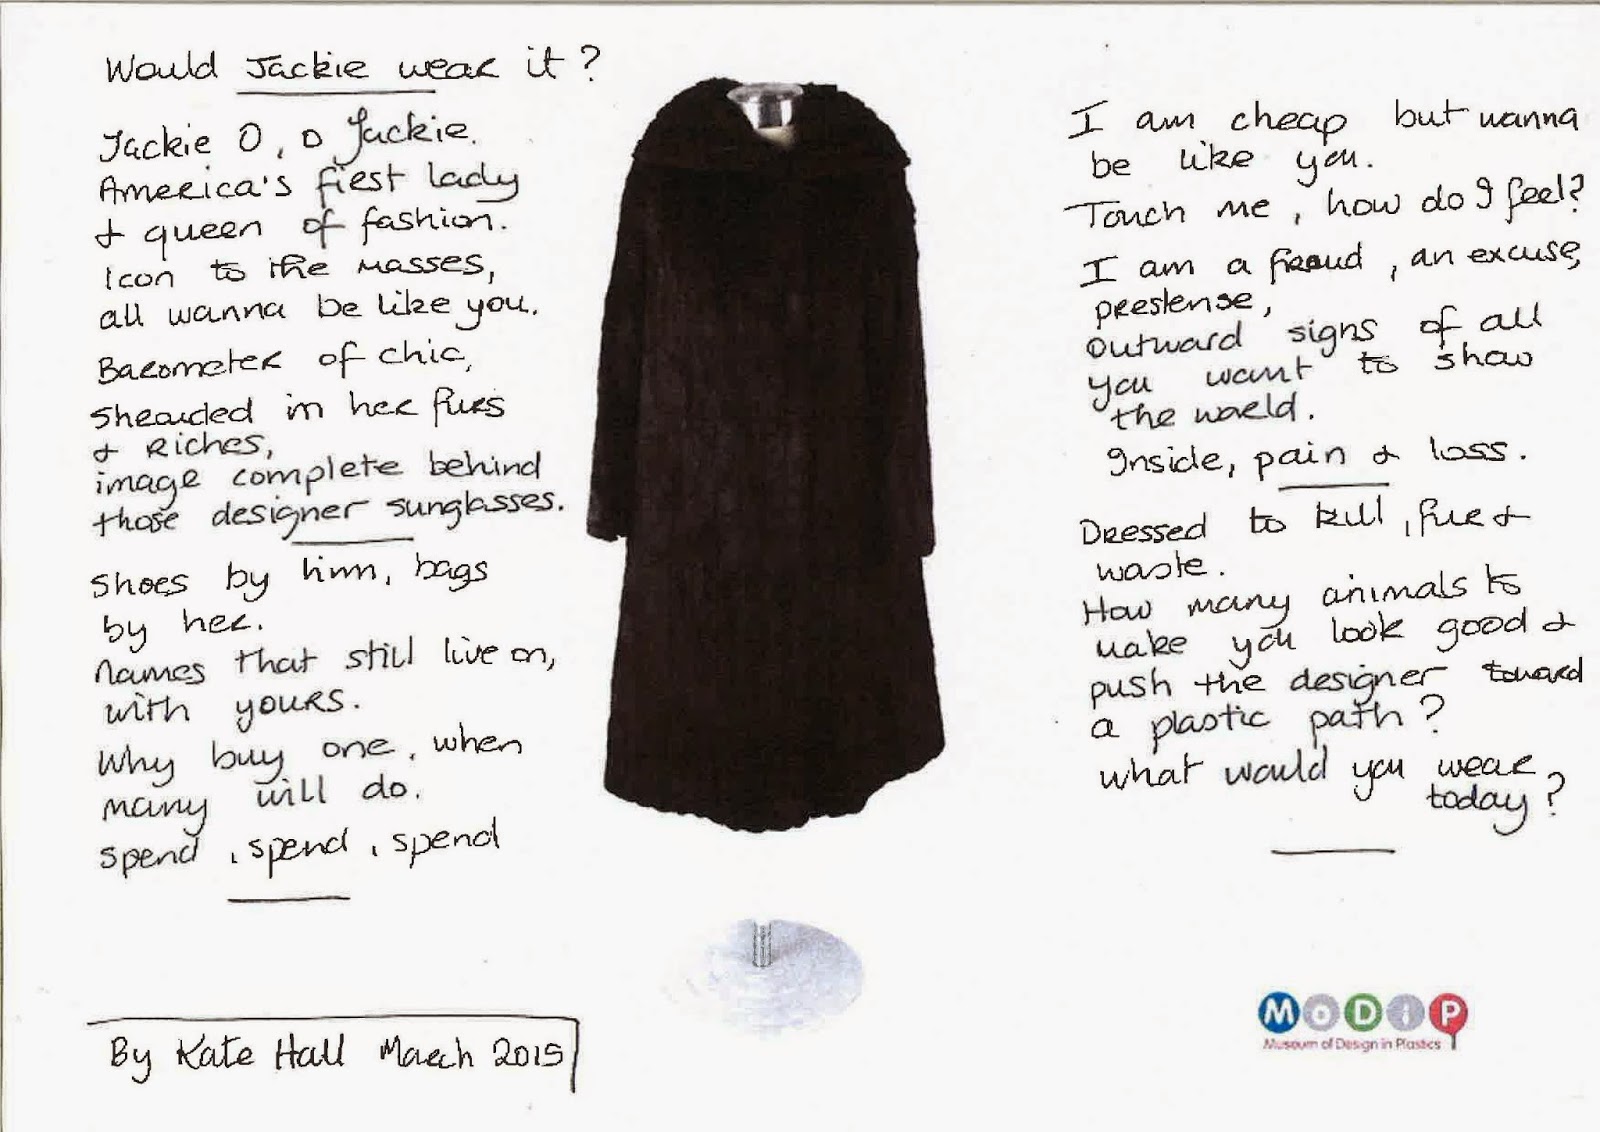 Would Jackie wear it?
Jackie O, O Jackie.
America's first lady
& queen of fashion.
Icon to the masses,
all wanna be like you.
Barometer of chic,
Shearded in her furs
& riches,
image complete behind
those designer sunglasses.
Shoes by him, bags
by her.
Names that still live on,
with yours.
Why buy one, when
many will do.
Spend, spend, spend
I am cheap but wanna
be like you.
Touch me, how do I feel?
I am a fraud, an excuse,
prestense,
Outward signs of all
you want to show
the world.
Inside, pain & loss.
Dressed to kill, fur &
waste.
How many animals to
make you look good &
push the designer toward
a plastic path?
What would you wear
today?
By Kate Hall March 2015
MoDiP
Museum of Design in Plastics